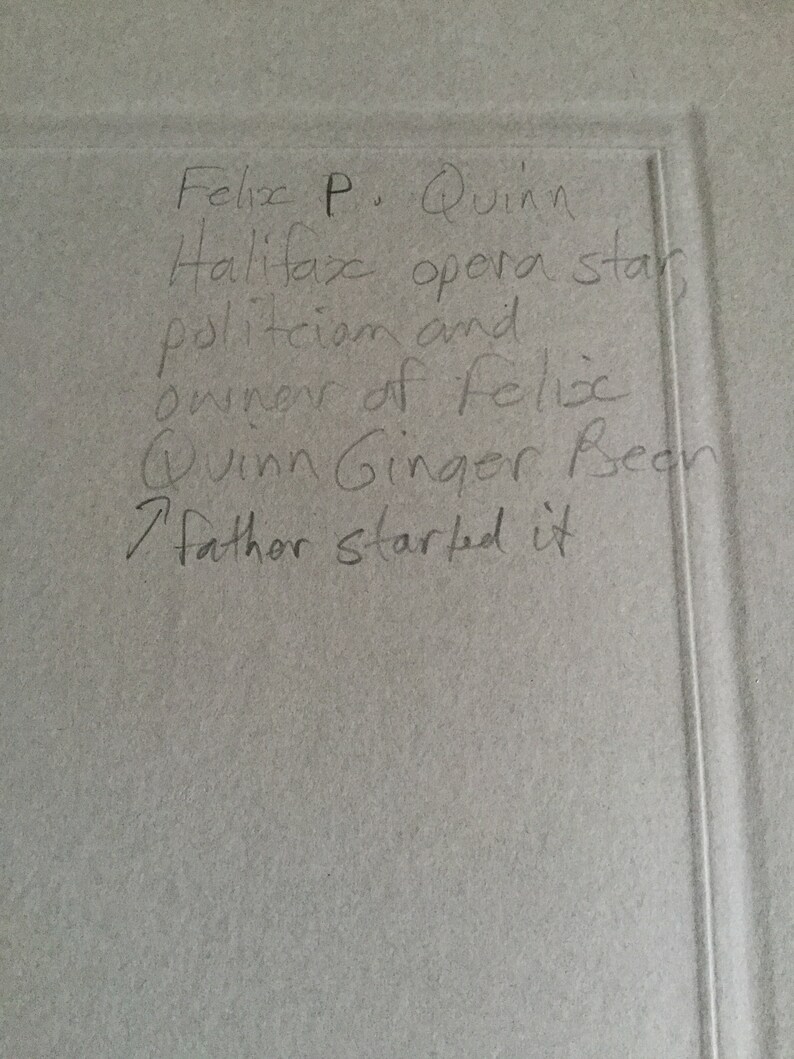 Felix P. Quinn
Halifax opera star,
politcian and
owner of Felix
Quinn Ginger Beer
↗ father started it